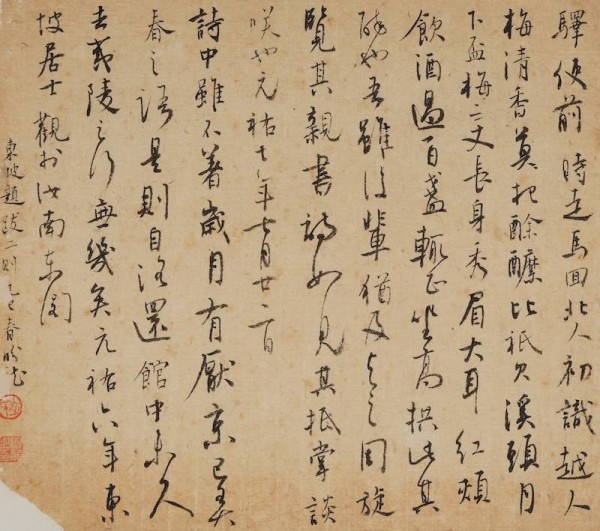 驛使前時走馬回北人初識越人
梅清香莫把酴醾比祇欠溪頭月
下盃梅二丈長身秀眉大耳紅頰
飲酒過百盞輒正坐高拱此其
醉也吾雖後輩猶及與之周旋
覽其親書詩如見其抵掌談
咲也元祐七年七月廿二日
詩中雖不著歲月有厭京已
春之語是則自洛還館中未久
去夷陵之行無幾矣元祐六年東
坡居士觀於汝南東閣
東坡題跋二則乙巳春